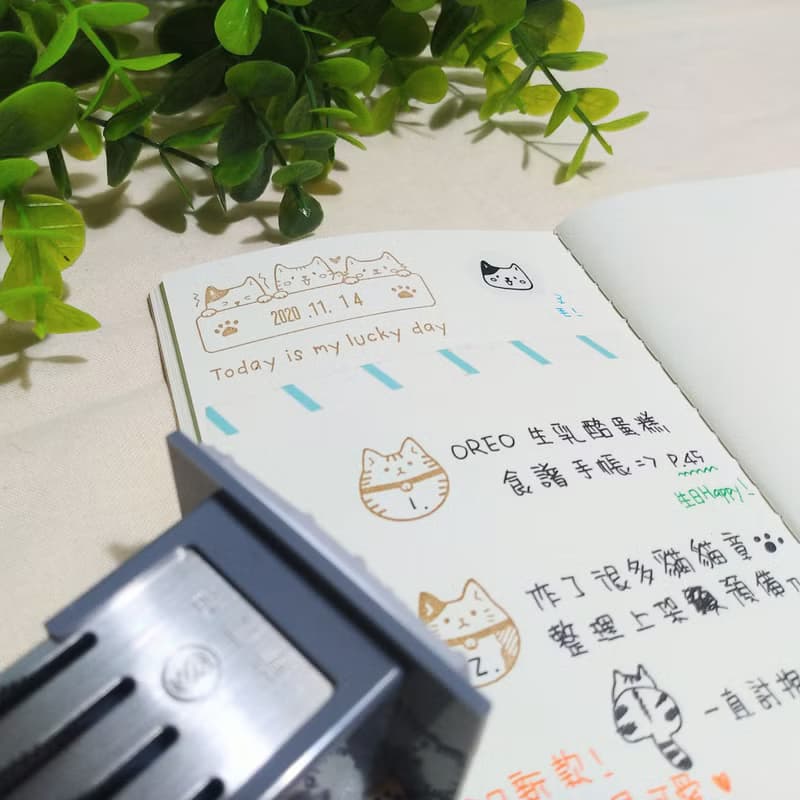 2020.11.14
Today is my lucky day
1. OREO 生乳酪蛋糕
食譜手帳 => P.45
生日Happy!
2. 作了很多貓貓章
整理上架 預備
一直討抱
新款!